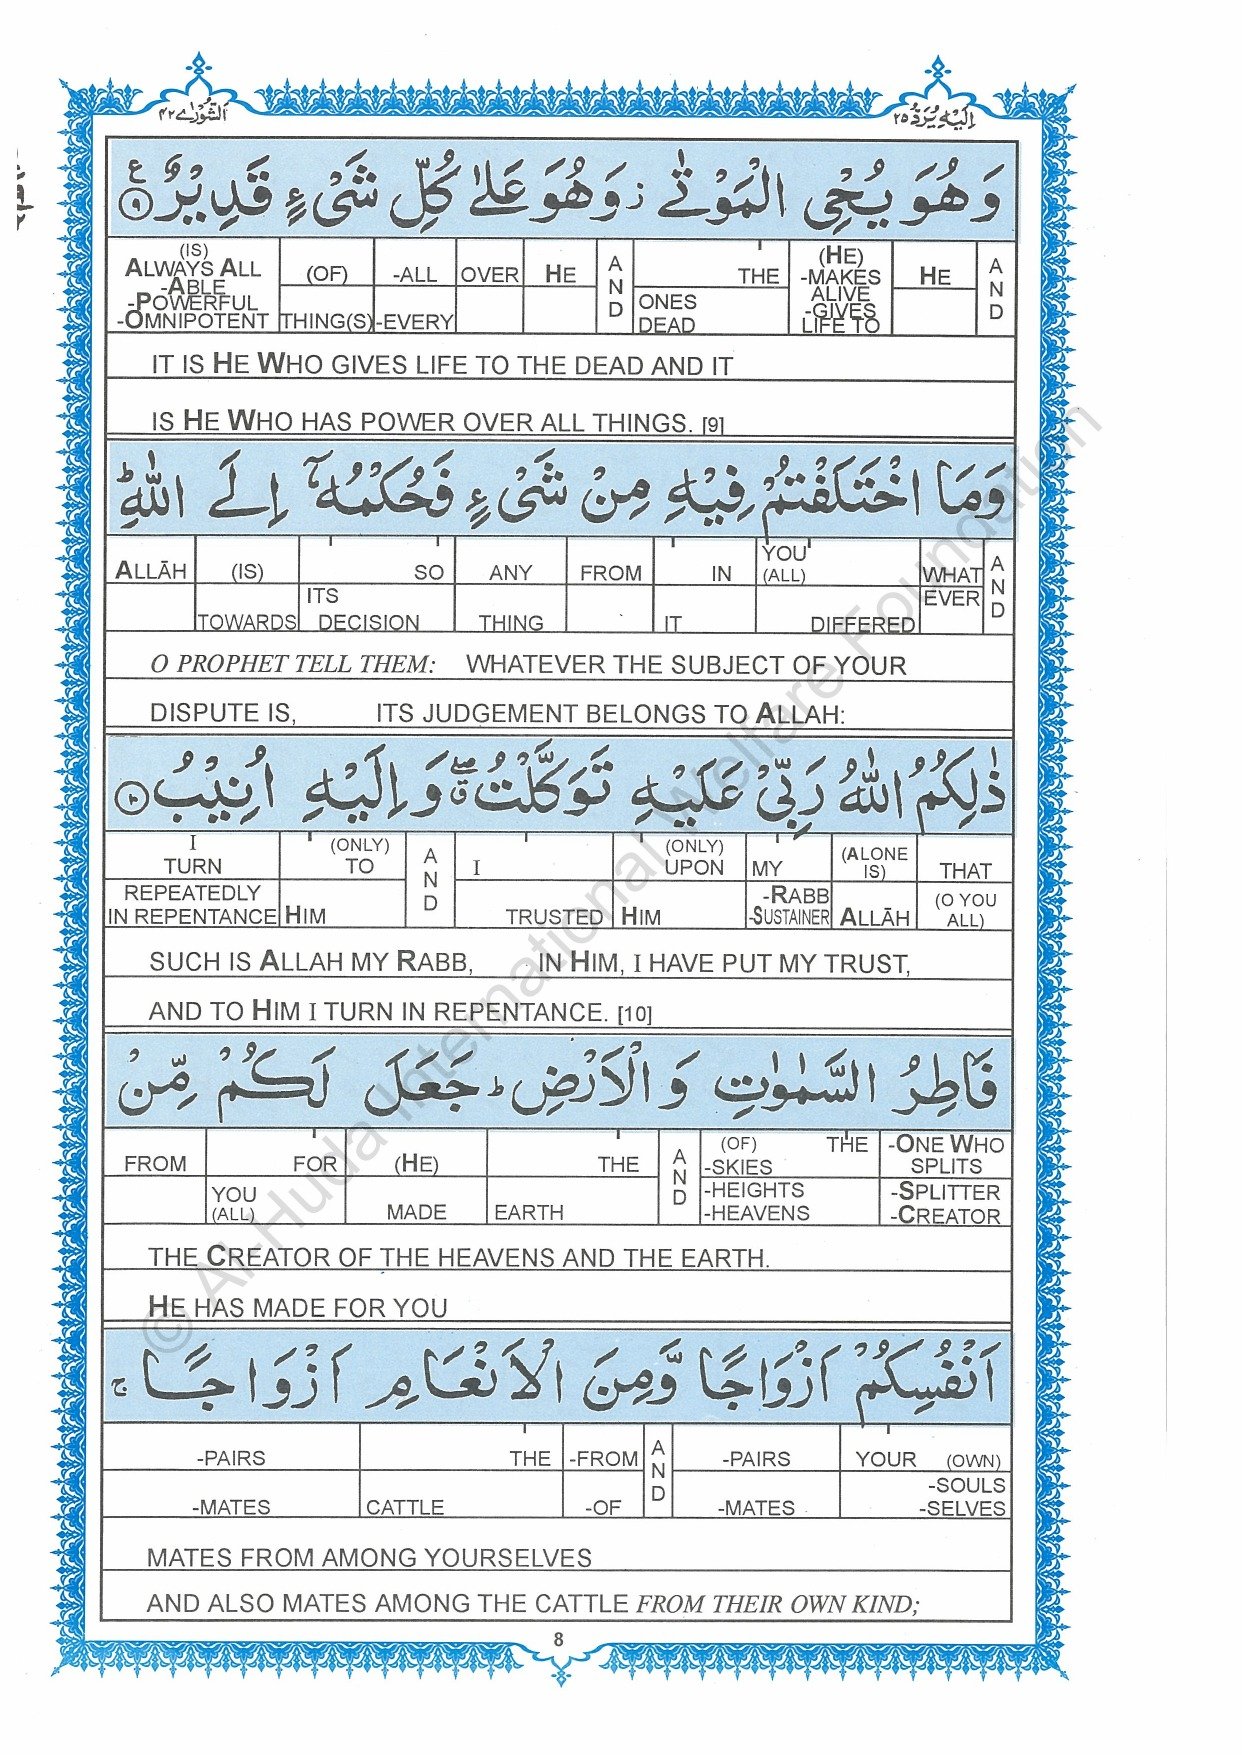 اَلشُّوْرٰى ٤٢
اِلَيْهِ يُرَدُّ ٢٥
وَهُوَ يُحْيِ الْمَوْتٰى ز وَهُوَ عَلٰى كُلِّ شَىْءٍ قَدِيْرٌ ۹ ع
AND HE (HE) -MAKES ALIVE -GIVES LIFE TO THE ONES DEAD AND HE OVER -ALL -EVERY (OF) THING(S) (IS) ALWAYS ALL -ABLE -POWERFUL -OMNIPOTENT
IT IS HE WHO GIVES LIFE TO THE DEAD AND IT
IS HE WHO HAS POWER OVER ALL THINGS. [9]
وَمَا اخْتَلَفْتُمْ فِيْهِ مِنْ شَىْءٍ فَحُكْمُهٗٓ اِلَى اللّٰهِ ط
AND WHAT EVER YOU (ALL) DIFFERED IN IT FROM ANY THING SO ITS DECISION (IS) TOWARDS ALLĀH
O PROPHET TELL THEM: WHATEVER THE SUBJECT OF YOUR
DISPUTE IS, ITS JUDGEMENT BELONGS TO ALLAH:
ذٰلِكُمُ اللّٰهُ رَبِّىْ عَلَيْهِ تَوَكَّلْتُ وَاِلَيْهِ اُنِيْبُ ۱۰
THAT (O YOU ALL) (ALONE IS) ALLĀH MY -RABB -SUSTAINER (ONLY) UPON HIM I TRUSTED AND (ONLY) TO HIM I TURN REPEATEDLY IN REPENTANCE
SUCH IS ALLAH MY RABB, IN HIM, I HAVE PUT MY TRUST,
AND TO HIM I TURN IN REPENTANCE. [10]
فَاطِرُ السَّمٰوٰتِ وَالْاَرْضِ ط جَعَلَ لَكُمْ مِّنْ
-ONE WHO SPLITS -SPLITTER -CREATOR (OF) THE -SKIES -HEIGHTS -HEAVENS AND THE EARTH (HE) MADE FOR YOU (ALL) FROM
THE CREATOR OF THE HEAVENS AND THE EARTH.
HE HAS MADE FOR YOU
اَنْفُسِكُمْ اَزْوَاجًا وَّمِنَ الْاَنْعَامِ اَزْوَاجًا ج
YOUR (OWN) -SOULS -SELVES -PAIRS -MATES AND -FROM -OF THE CATTLE -PAIRS -MATES
MATES FROM AMONG YOURSELVES
AND ALSO MATES AMONG THE CATTLE FROM THEIR OWN KIND;
8
© Al-Huda International Welfare Foundation